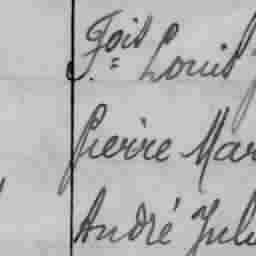 Fois Louis
Pierre Mar
André Jule